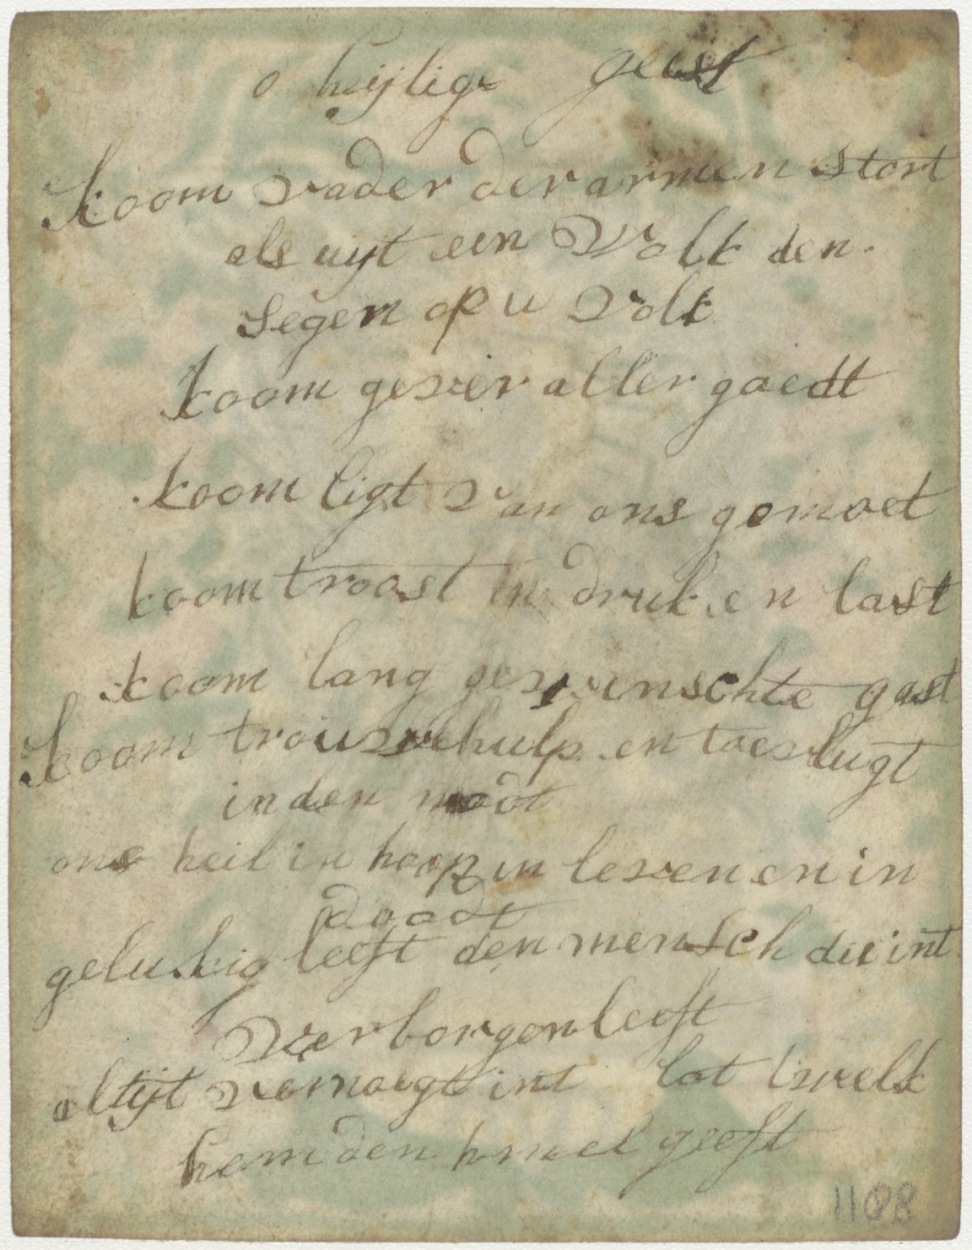 o heijlige geest
koom vader der armen stort
als uijt een Volk den
Segen op u volk
koom gever aller goedt
koom ligt van ons gemoet
koom troost in druk en last
koom lang gewunschte gast
koom trouwe hulp en toevlugt
in den noot
ons heil in hoop in leven en in
doodt
gelukig leeft den mensch die int
Verborgen leeft
altijt vernoegt int lot twelk
hem den hmel geeft
1108